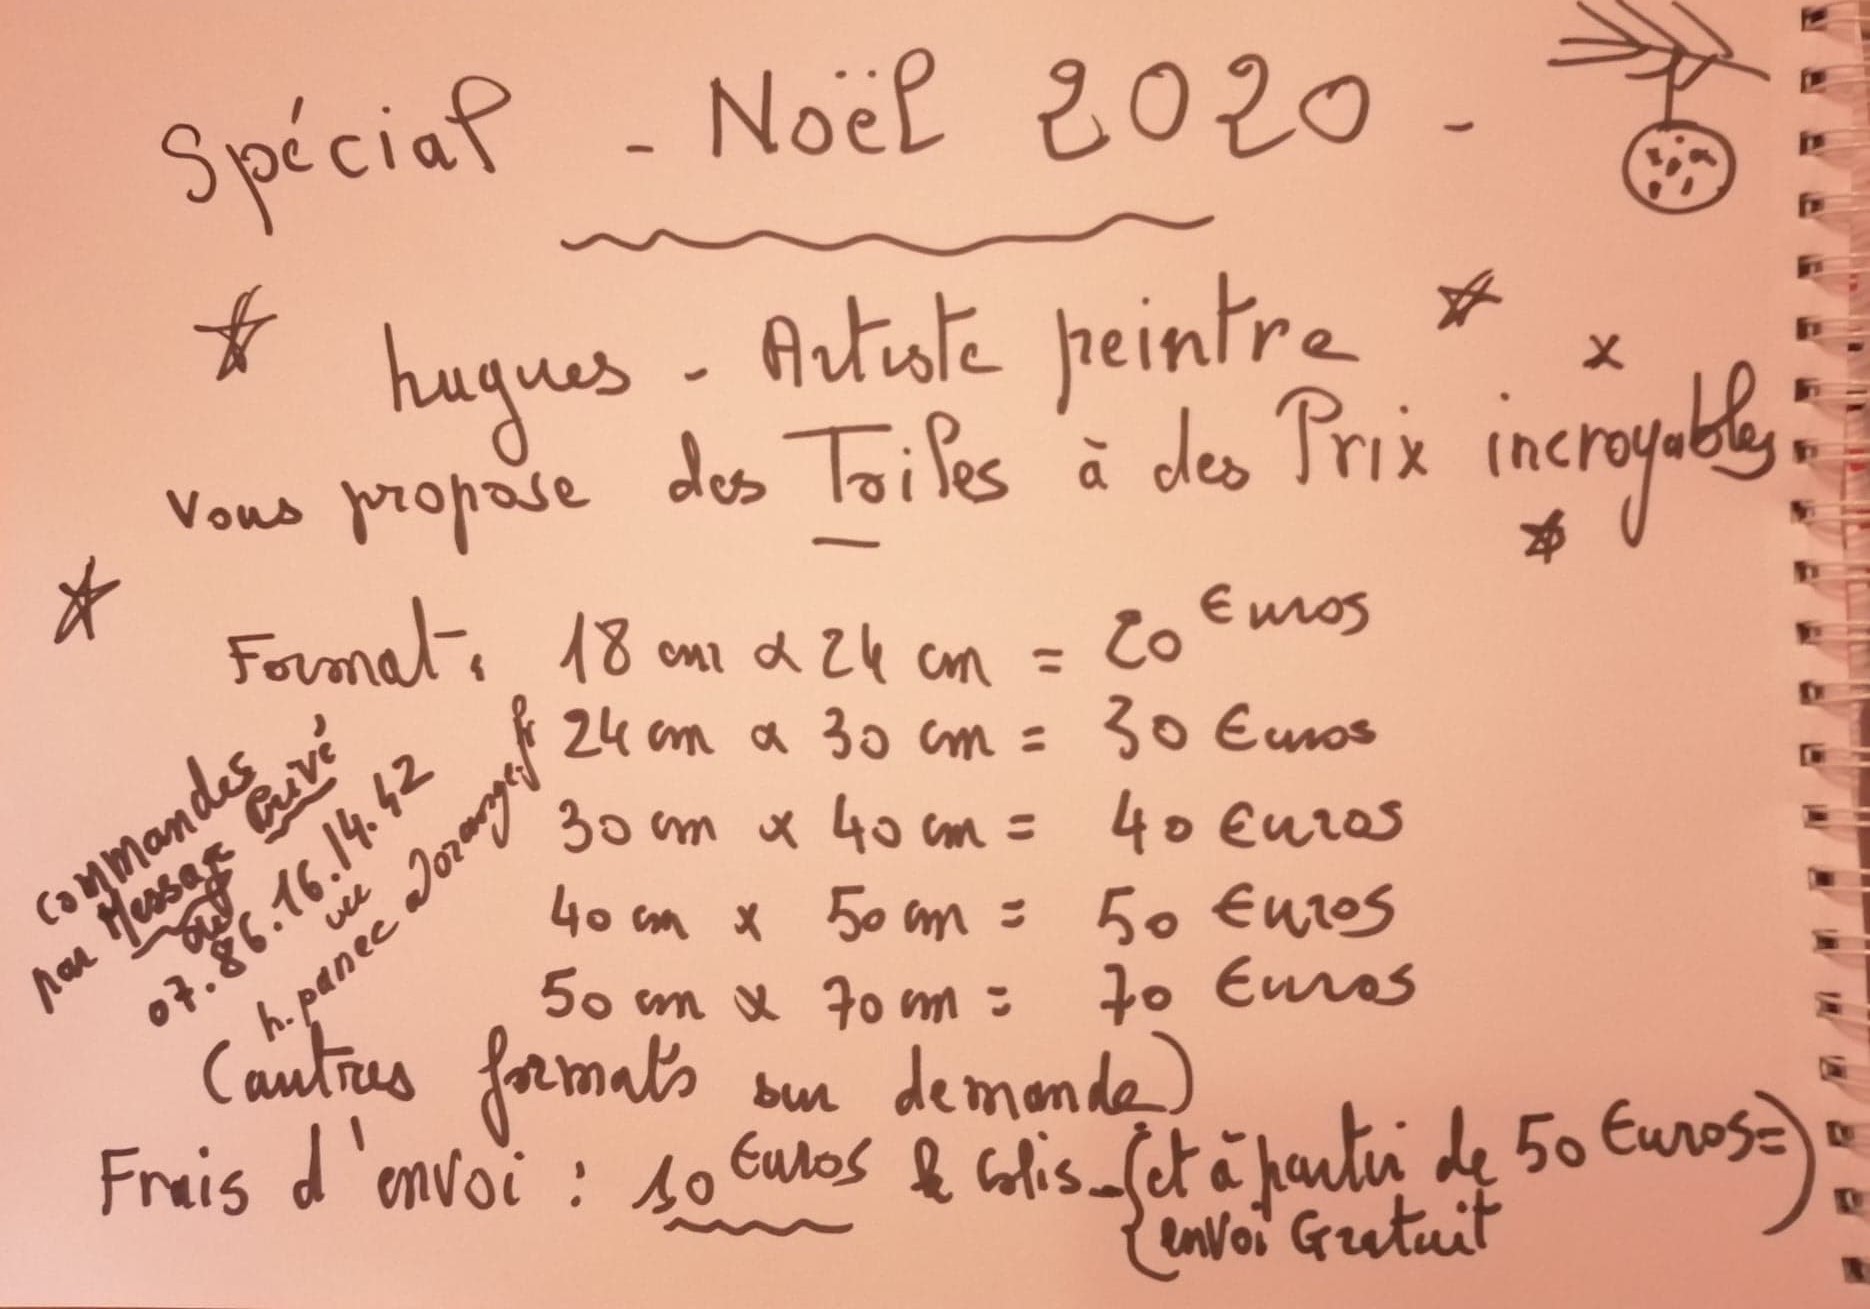 Spécial - Noël 2020 -
hugues - Artiste peintre
vous propose des Toiles à des Prix incroyables
Format : 18 cm x 24 cm = 20 Euros
24 cm x 30 cm = 30 Euros
30 cm x 40 cm = 40 Euros
40 cm x 50 cm = 50 Euros
50 cm x 70 cm = 70 Euros
commandes
par Message Privé
ou
07.86.16.14.42
ou
h.panec@orange.fr
(autres formats sur demande)
Frais d'envoi : 10 Euros le Colis - (et à partir de 50 Euros =
envoi Gratuit)